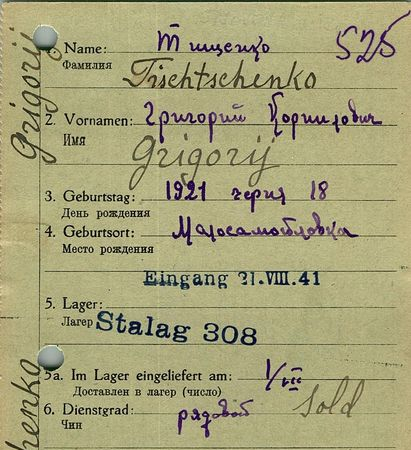 1. Name: Тищенко 525
Фамилия Tischtschenko
2. Vornamen: Григорий Корнилович
Имя Grigorij
3. Geburtstag: 1921 червня 18
День рождения
4. Geburtsort:
Место рождения
Eingang 21.VIII.41
5. Lager:
Лагер Stalag 308
5a. Im Lager eingeliefert am: 1/VII
Доставлен в лагер (число)
6. Dienstgrad: рядовой Sold
Чин
Grigorij
henko